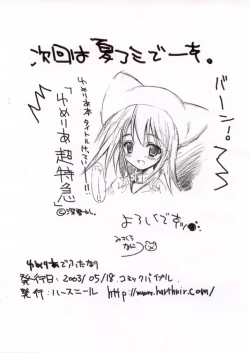 次回は夏コミでーす。
バーン!
ゆめりあ本
タイトルは
「ゆめりあ超特急」
よろしくですッ
ゆめりあでふたなり
発行日:2003/05/18.コミックバイブル
発行:ハースニール http://www.harthnir.com/